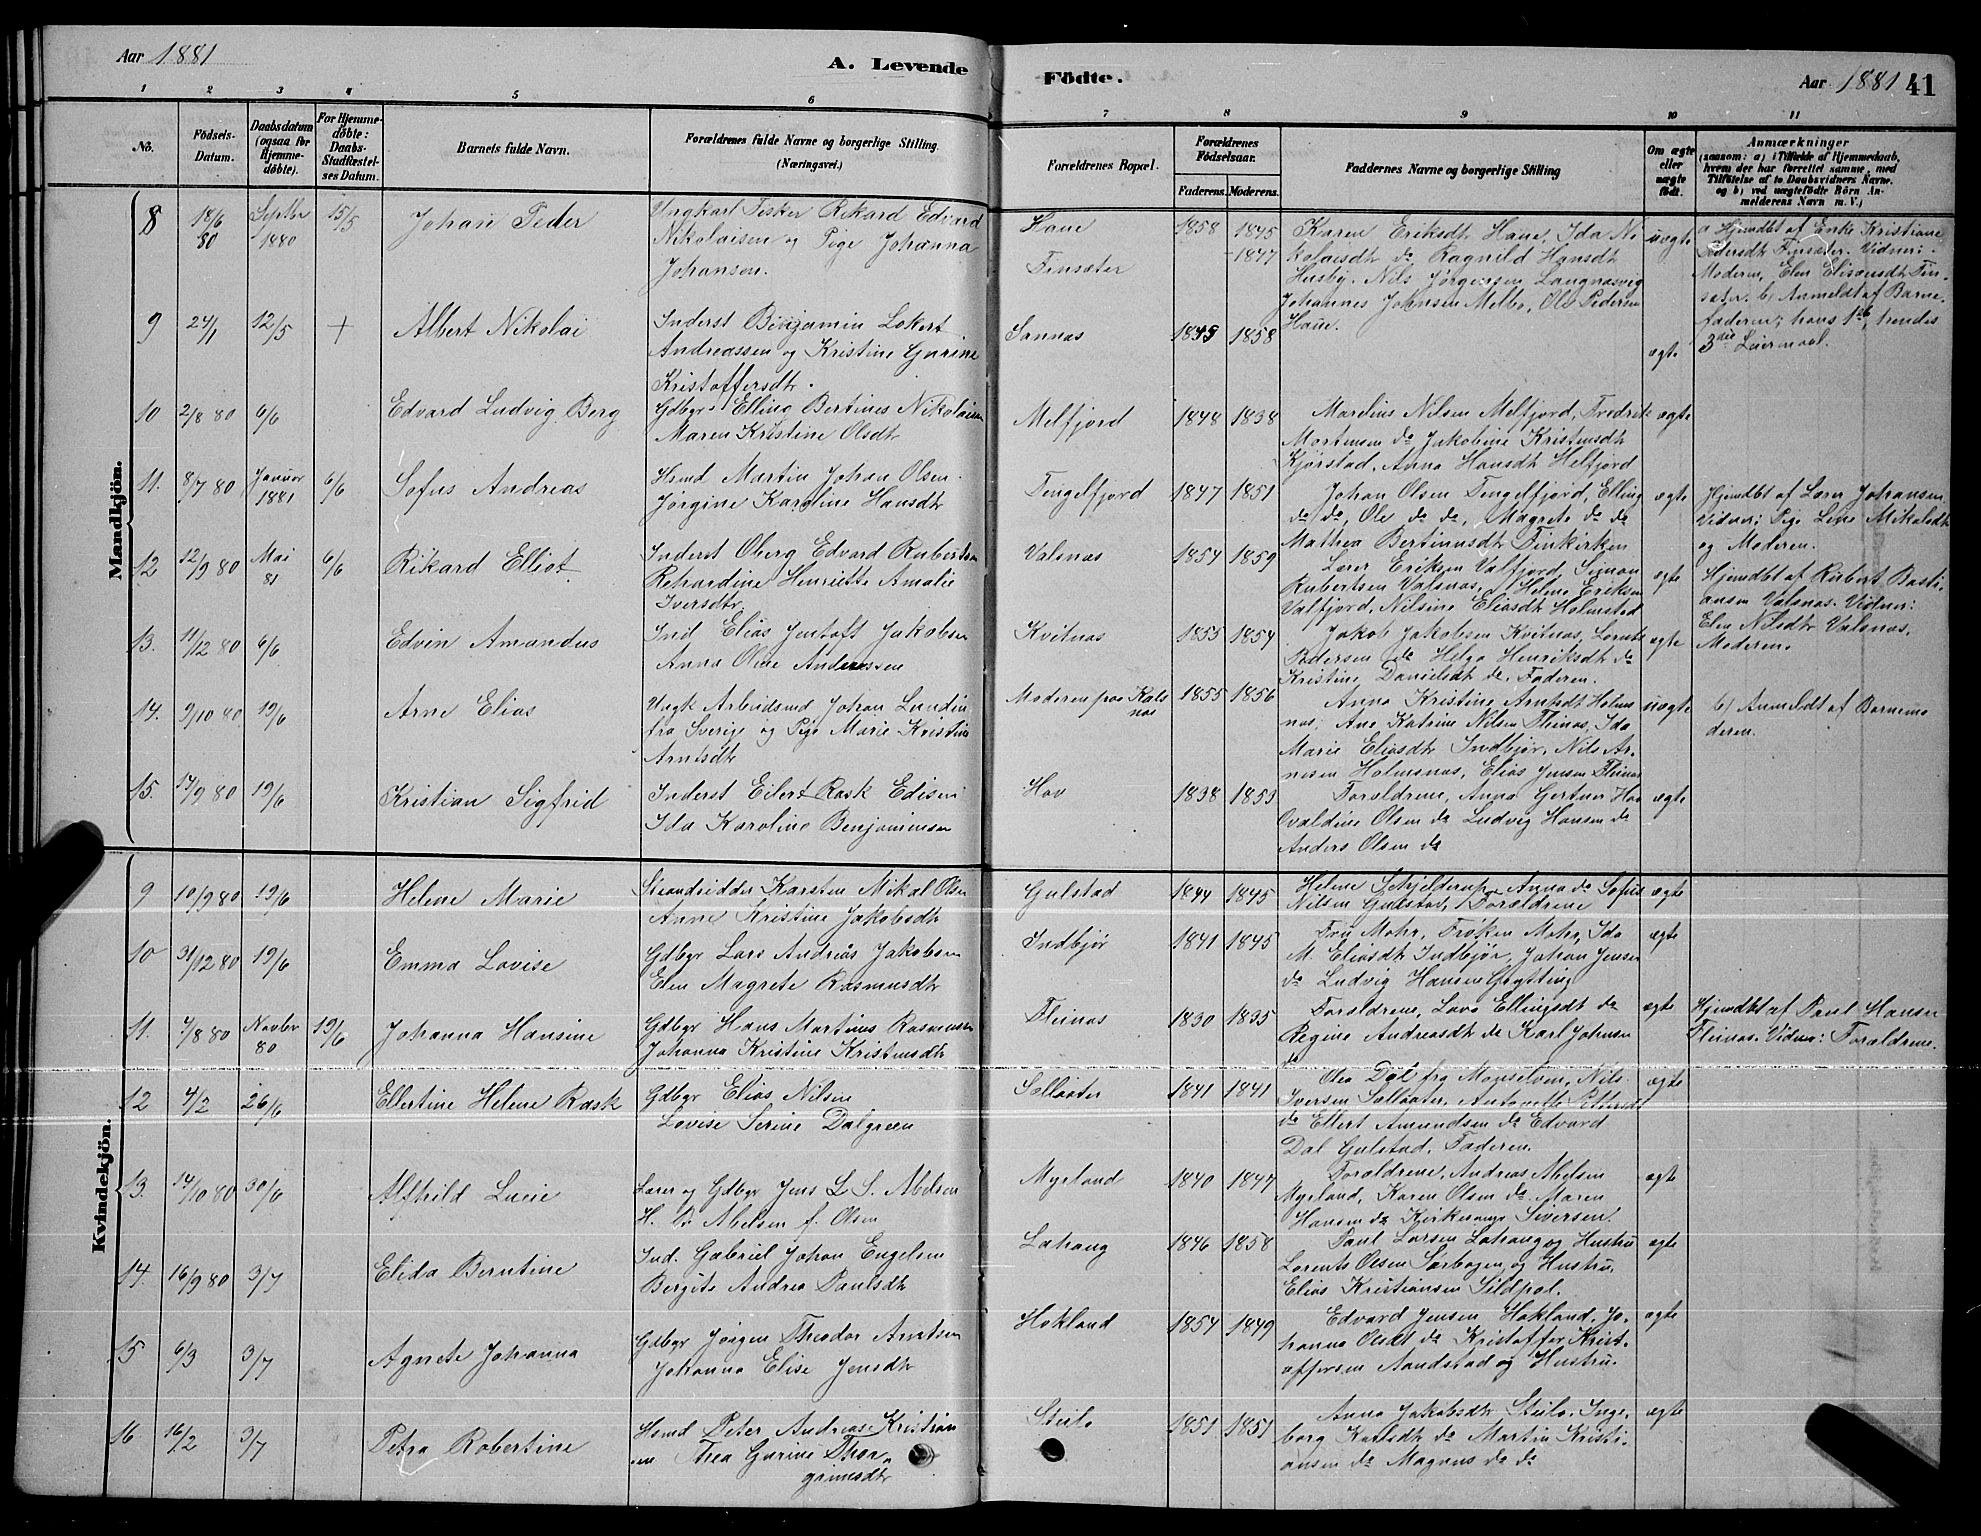 Aar 1881
A. Levende
Födte.
Aar 1881
41
1 2 3 4 5 6 7 8 9 10 11
No.
Födsels-
Datum.
Daabsdatum
(ogsaa for
Hjemme-
döbte).
For Hjemme-
döbte:
Daabs-
Stadfæstel-
ses Datum.
Barnets fulde Navn.
Forældrenes fulde Navne og borgerlige Stilling
(Næringsvei.)
Forældrenes Bopæl.
Forældrenes
Födselsaar.
Faderens. Moderens.
Faddernes Navne og borgerlige Stilling
Om ægte
eller
uægte
födt.
Anmærkninger
(saasom: a) i Tilfælde af Hjemmedaab,
hvem der har forrettet samme, med
Tilföielse af to Daabsvidners Navne.
og b) ved uægtefödte Börn An-
melderens Navn m. V.)
Mandkjön.
8 18/6 80 Septbr 1880 15/5 Johan Peder
Ungkarl Fisker Rikard Edvard
Nikolaisen og Pige Johanna
Johansen.
Haue
Finsæter
1858 1845
-1847
Karen Eriksdtr Haue, Ida Ni
kolaisdtr do Ragnild Hansdtr
Husby, Nils Jørgensen Langnæsvig
Johannes Johnsen Melbo, Ole Pedersen
Haue.
uægte
a Hjemdbt af Enke Kristiane
Pedersdtr Finsæter. Vidner:
Moderen, Elen Elisæusdtr Fin
sæter. b) Anmeldt af Barne
faderen; hans 1ste, hendes
3die Leiermaal.
9 24/1 12/5 + Albert Nikolai
Inderst Benjamin Lokert
Andreassen og Kristine Gjurine
Kristoffersdtr.
Sannæs
1845 1858
ægte
10 2/8 80 6/6 Edvard Ludvig Berg
Gdbgr Elling Bertines Nikolaisen
Maren Kristine Olsdtr
Melfjord
1848 1838
Marelius Nilsen Melfjord, Fredrik
Mortensen do Jakobine Kristensdtr
Kjørstad, Anna Hansdtr Melfjord
ægte
11. 8/7 80 Januar 1881 6/6 Sofus Andreas
Hsmd Martin Johan Olsen
Jørgine Karoline Hansdtr
Tengelfjord
1847 1851
Johan Olsen Tengelfjord, Elling
do do, Ole do do, Magrete do do
Mathea Bertinusdtr Finkirken
ægte
Hjemdbt af Lærer Johansen
Vidner: Pige Line Mikalsdtr
og Moderen.
12 12/9 80 Mai 81 6/6 Rikard Elliot
Inderst Oberg Edvard Rubertsen
Rehardine Henriette Amalie
Iversdtr.
Valsnæs
1854 1859
Lærer Eriksen Valfjord, Simon
Rubertsen Valsnæs, Helene Eriksen
Valfjord, Nilsine Eliasdtr Holmstad
ægte
Hjemdbt af Rubert Basti
ansen Valsnæs. Vidner:
Elen Nilsdtr Valsnæs,
Moderen.
13. 11/12 80 6/6 Edvin Amandus
Ind Elias Jentoft Jakobsen
Anna Oline Anderssen
Kvitnæs
1855 1854
Jakob Jakobsen Kvitnæs, Lornts
Pedersen do Helga Henriksdtr do
Kristine Danielsdt do Faderen.
ægte
14. 9/10 80 19/6 Arne Elias
Ungk Arbeidsmd Johan Lundin
fra Sverige og Pige Marie Kristine
Arntsdtr
Moderen paa Kals
næs
1855 1856
Anna Kristine Arntsdt Holms
næs, Ane Katrine Nilsen Fleinæs, Ida
Marie Eliasdtr Indbjør, Nils Ar-
nesen Holmsnæs, Elias Jensen Fleinæs
uægte
b) Anmeldt af Barnemo
deren.
15. 14/9 80 19/6 Kristian Sigfrid
Inderst Eilert Rask Edisen
Ida Karoline Benjaminsen
Hov
1838 1853
Forældrene, Anna Gertner Hov
Ovaldine Olsen do Ludvig Hansen do
Anders Olsen do
ægte
Kvindekjön.
9 10/9 80 19/6 Helene Marie
Strandsidder Karsten Mikal Olsen
Anne Kristine Jakobsdtr
Gulstad
1844 1845
Helene Schjelderup, Anna do Sofus
Nilsen Gulstad, Forældrene
ægte
10 31/12 80 19/6 Emma Lovise
Gdbgr Lars Andreas Jakobsen
Elen Magrete Rasmusdtr
Indbjør
1841 1845
Fru Mohr, Frøken Mohr, Ida
M. Eliasdt Indbjør, Johan Jensen
do Ludvig Hansen Gysting
ægte
11. 7/8 80 Novbr 80 19/6 Johanna Hansine
Gdbgr Hans Martinus Rasmussen
Johanna Kristine Kristensdtr
Fleinæs
1830 1835
Forældrene, Lava Ellingsdt do
Regine Andreasdt do Karl Johnsen
do
ægte
Hjemdbt af Paul Hansen
Fleinæs. Vidner: Forældrene.
12 4/2 26/6 Ellertine Helene Rask
Gdbgr Elias Nilsen
Lovise Serine Dalgreen
Sellæter
1841 1841
Olea Dal fra Maaselven, Nils
Iversen Sellæter, Antonette Pettersdt
do Ellert Amundsen do Edvard
Dal Gulstad, Faderen.
ægte
13. 14/10 80 30/6 Alfhild Lucie
Lærer og Gdbgr Jens L. S. Abelsen
H. Abelsen f. Olsen
Myrland
1840 1844
Forældrene, Andreas Abelsen
Myrland, Karen Olsen do Maren
Hansen do Kirkesanger Siversen.
ægte
14. 16/9 80 3/7 Elida Berntine
Ind. Gabriel Johan Engelsen
Bergite Andrea Paulsdt
Lahaug
1846 1858
Paul Larsen Lahaug og Hustru
Lorents Olsen Sørbogen og Hustru,
Elias Kristiansen Sildpol.
ægte
15 6/3 3/7 Agnete Johanna
Gdbgr Jørgen Theodor Arntsen
Johanna Elise Jensdtr
Hokland
1854 1849
Edvard Jensen Hokland, Jo-
hanna Olsdt do Kristoffer Krist-
offersen Aandstad og Hustru.
ægte
16. 16/2 3/7 Petra Robertine
Hsmd Peter Andreas Kristian
sen Thea Gurine Thor
grimsdtr
Steilo
1851 1851
Anna Jakobsdtr Steilo, Inge-
borg Karlsdt do Martin Kristi-
ansen do Magnus do do
ægte